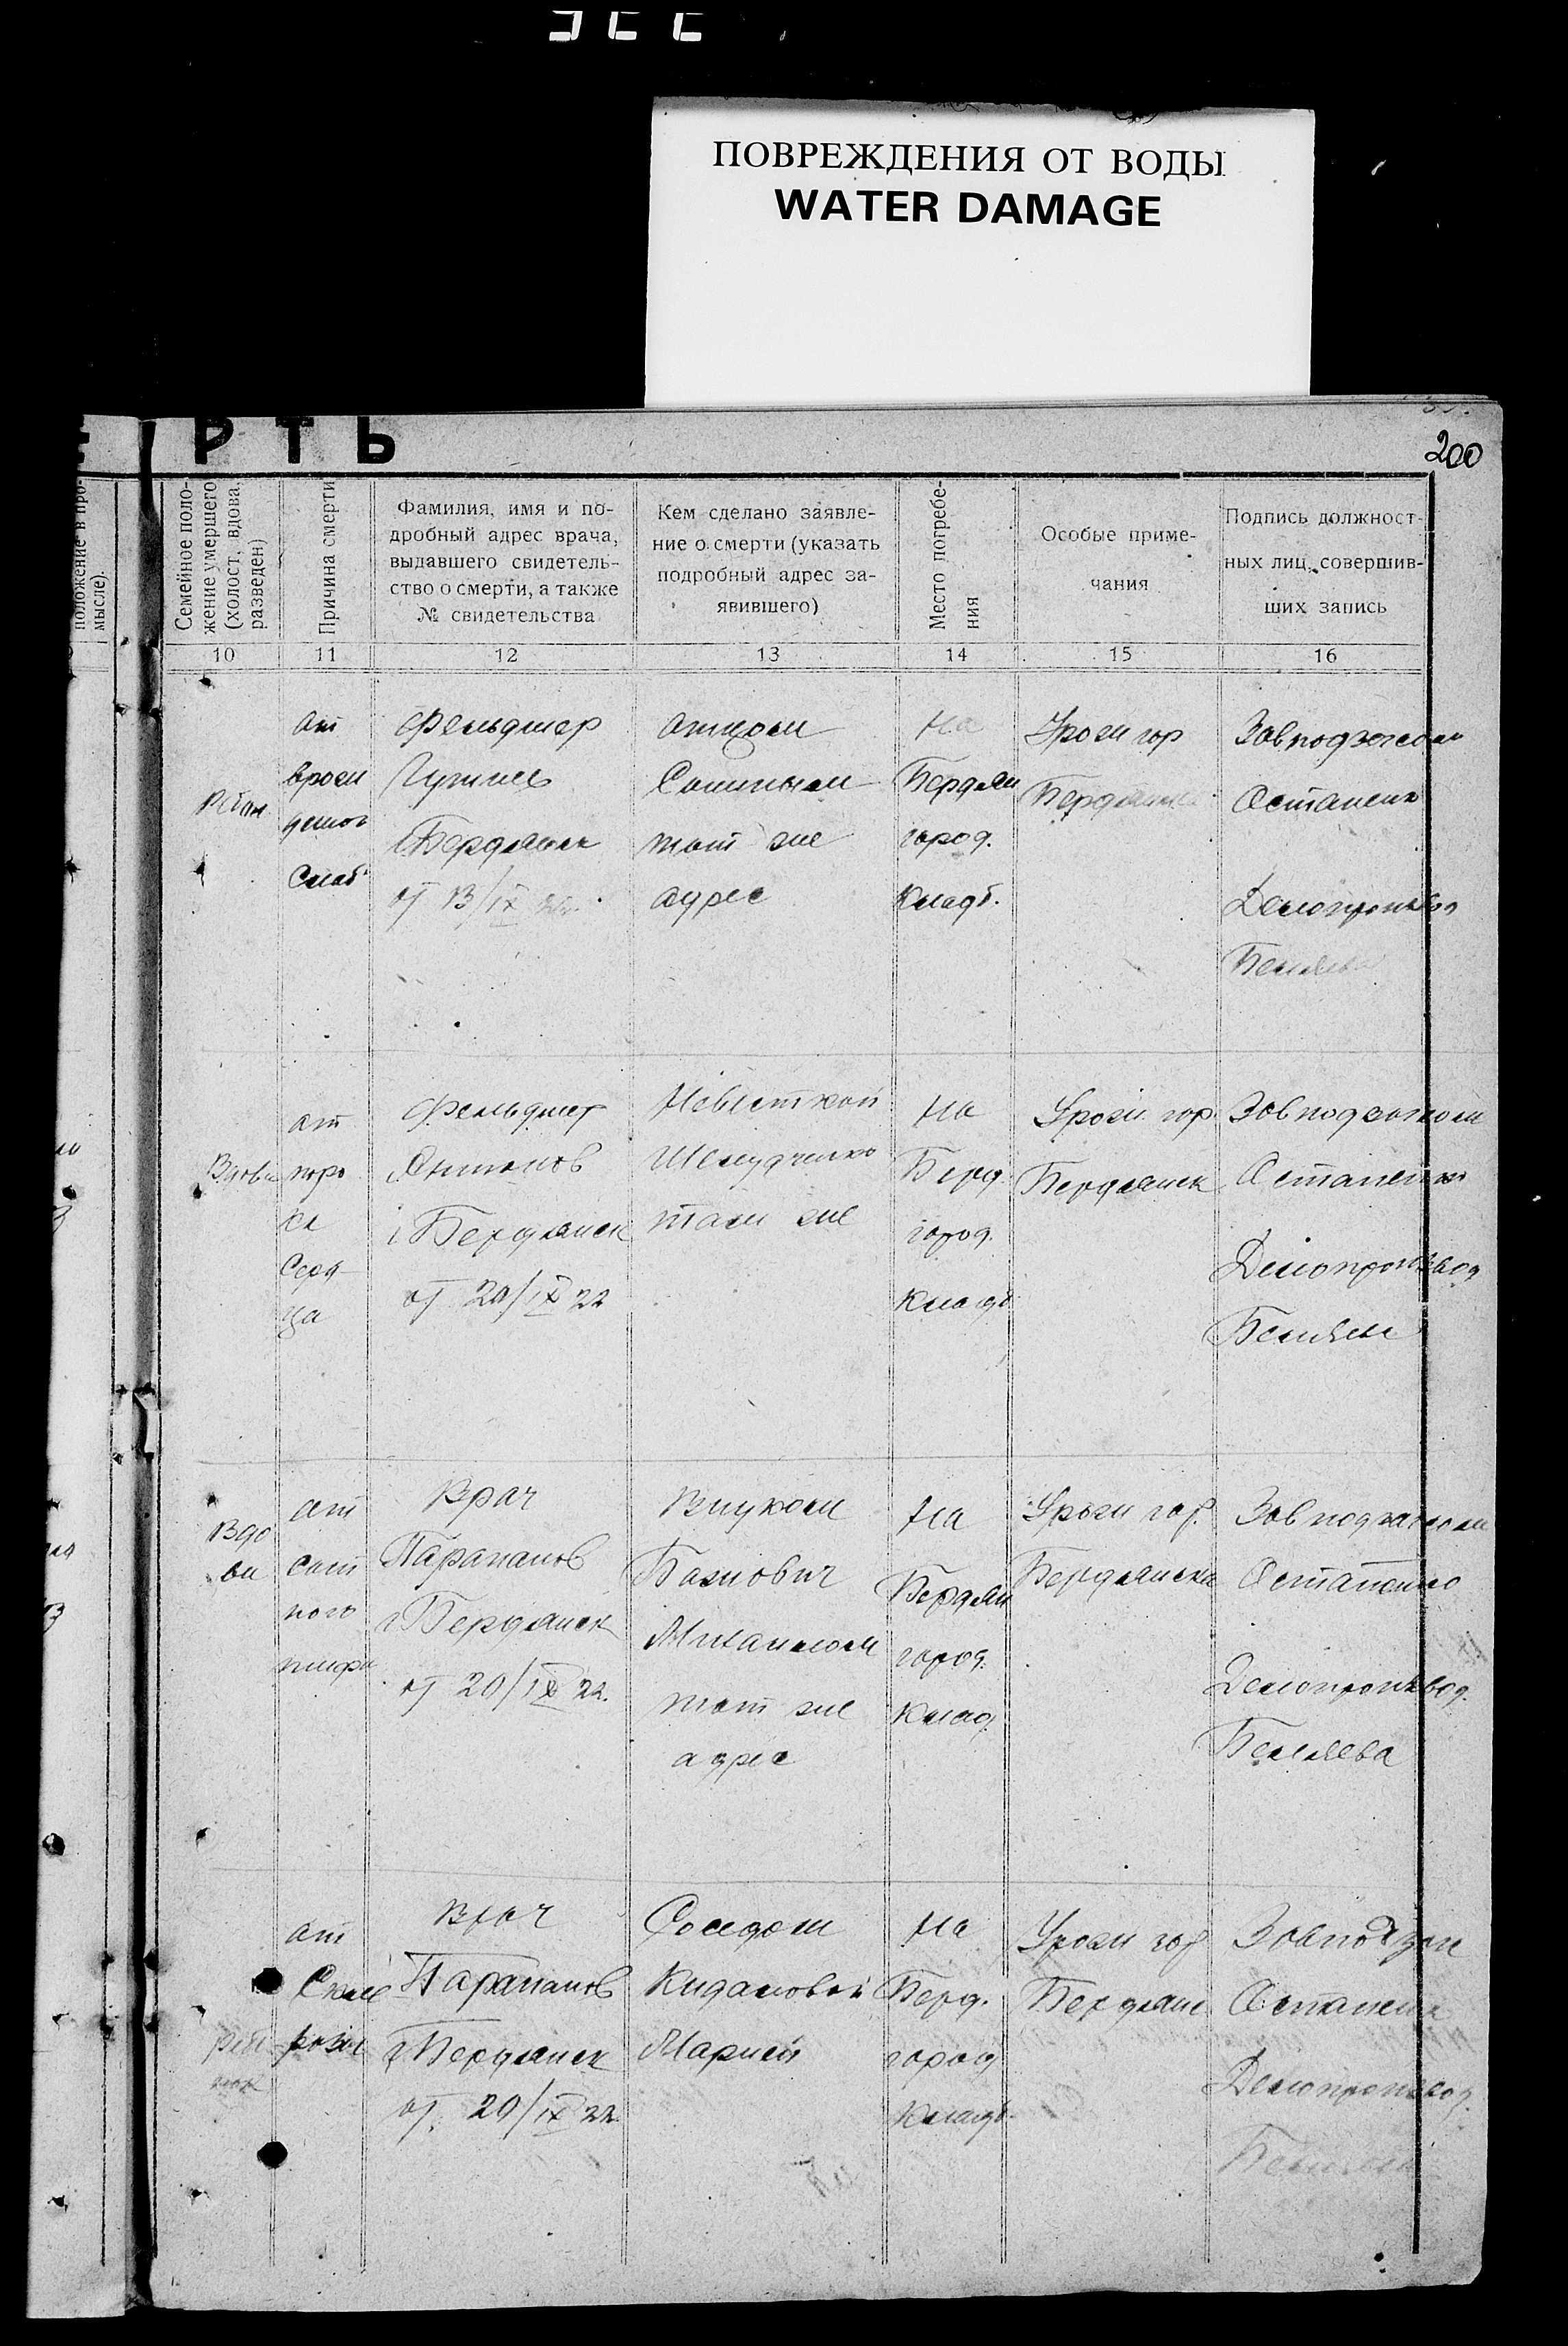 ПОВРЕЖДЕНИЯ ОТ ВОДЫ
WATER DAMAGE
РТЬ
200
положение в про-
мысле).
Семейное поло-
жение умершего
(холост, вдова,
разведен)
Причина смерти
Фамилия, имя и по-
дробный адрес врача,
выдавшего свидетель-
ство о смерти, а также
№ свидетельства
Кем сделано заявле-
ние о смерти (указать
подробный адрес за-
явившего)
Место погребе-
ния
Особые приме-
чания
Подпись должност-
ных лиц, совершив-
ших запись
10 11 12 13 14 15 16
от
врож
слаб
Фельдшер
Бердянск
от 13/IX 22.
отцом
тот же
адрес
На
Бердян
город.
кладб.
Урож гор
Бердянска
Завподзагсом
Остапенко
Делопроизвод
Беляева
Вдова
от
поро
ка
серд
ца
Фельдшер
г. Бердянск
от 20/IX 22
Невесткой
Шелудченко
там же
На
Берд.
город.
кладб
Урож. гор
Бердянск
Завподзагсом
Остапенко
Делопроизвод
Беляева
Вдо
ва
от
сып
ного
тифа
Врач
Парапанов
г Бердянск
от 20/IX 22.
Внуком
Михаилом
тот же
адрес
На
Бердян
город.
клад.
Урож гор.
Бердянска
Завподзагсом
Остапенко
Делопроизвод.
Беляева
от
Скле
роза
Врач
Парапанов
г Бердянск
от. 20/IX 22
Соседом
Марией
На
Берд.
город
кладб.
Урож гор
Бердянс
Завподзаг
Остапенко
Делопроизвод.
Беляева